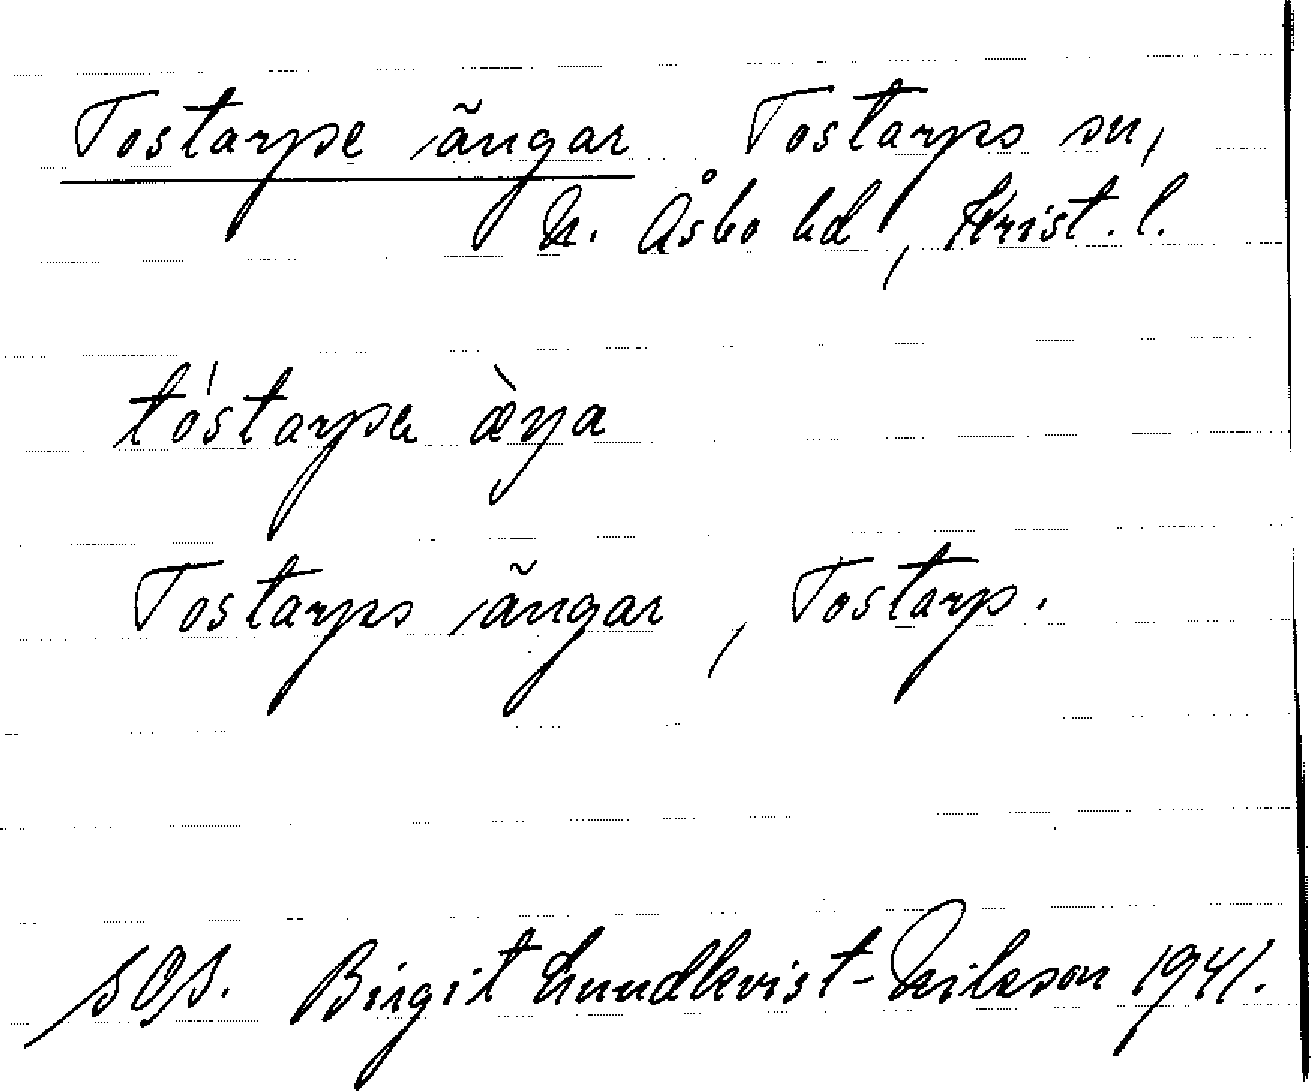 Tostarpe ängar Tostarps sn,
N. Åsbo hd, Krist. l.
tóstarpa æ̀ŋa
Tostarps ängar, Tostarp.
SOS. Birgit Lundkvist-Nilsson 1941.